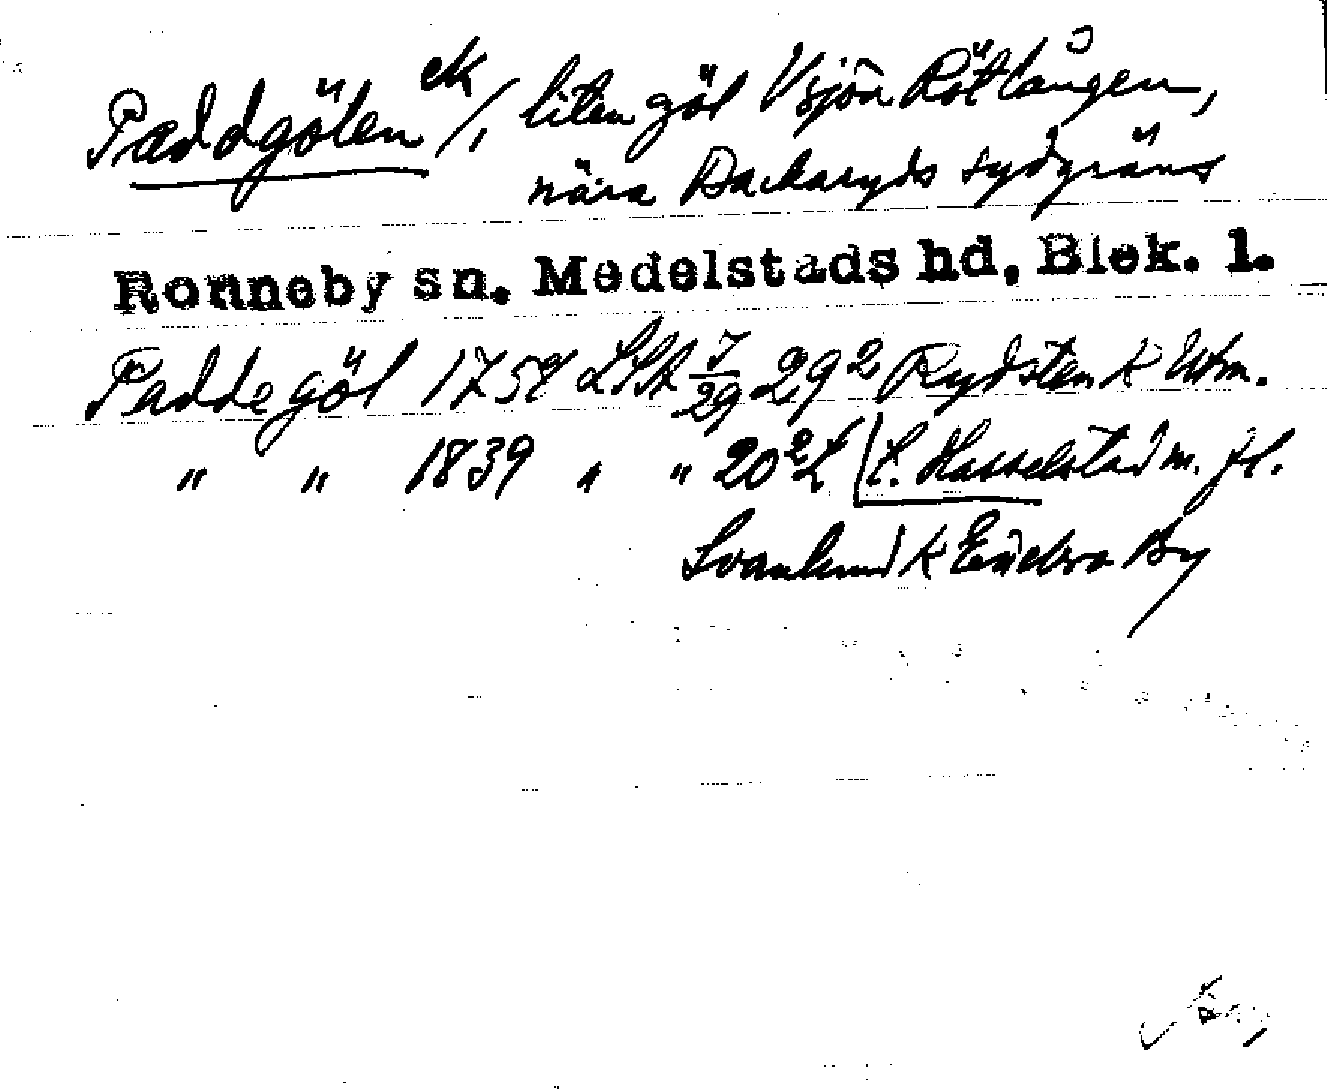 Paddgölen ek/, liten göl V sjön Rötlången,
nära Backaryds sydgräns
Ronneby sn. Medelstads hd, Blek. l.
Paddegöl 1759 LSA 7/29 29² Rydsten k Utm.
" " 1839 " " 20² L. Hasselstad m. fl.
Svanlund k Enskra By